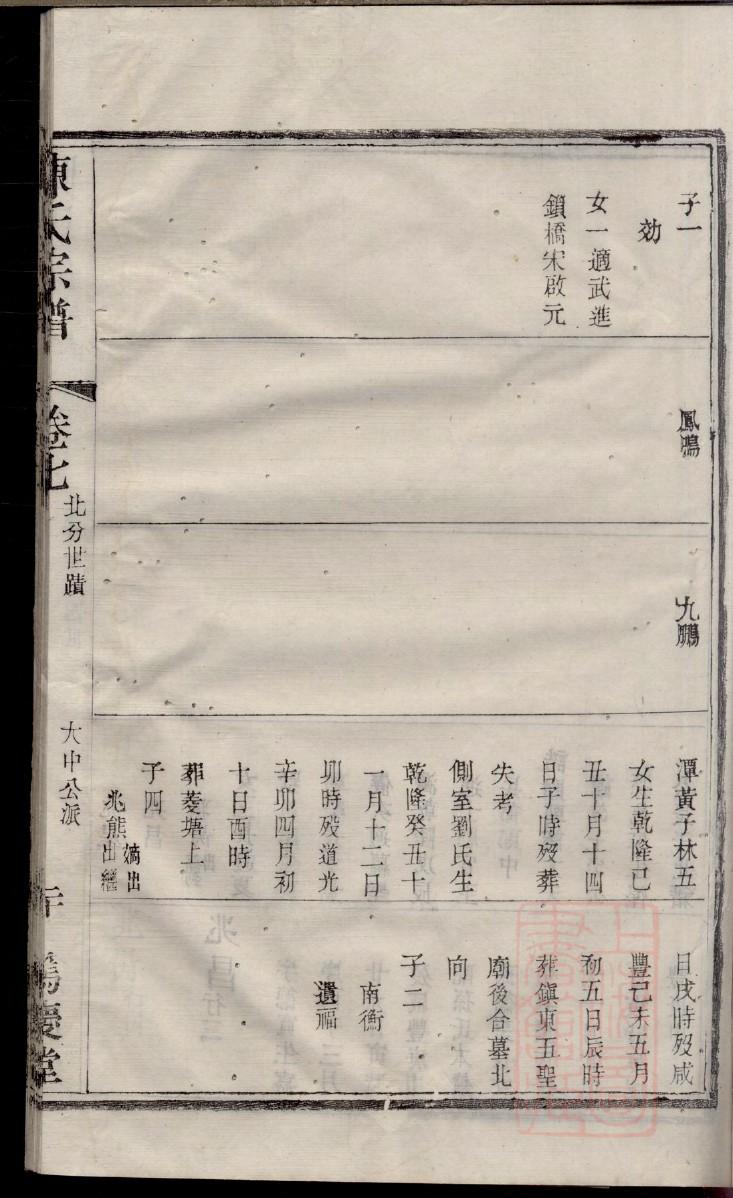 子一
効
女一適武進
鎖橋宋啟元
鳳鳴
九鵬
潭黃子林五
女生乾隆己
丑十月十四
日子時歿葬
失考
側室劉氏生
乾隆癸丑十
一月十二日
卯時歿道光
辛卯四月初
十日酉時
葬菱塘上
子四
兆熊嫡出出繼
日戌時歿咸
豐己未五月
初五日辰時
葬鎮東五聖
廟後合墓北
向
子二
南衡
遺福
陳氏宗譜
卷七
北分世蹟
大中公派